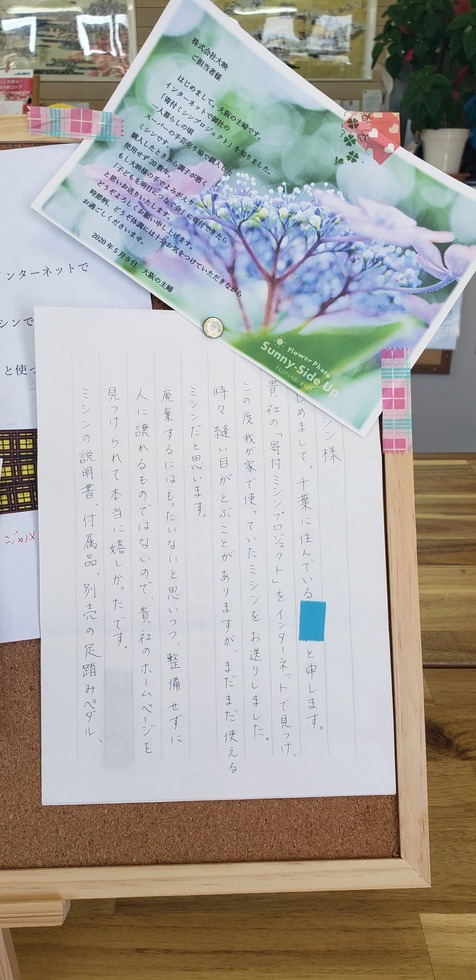 株式会社大映
ご担当者様
はじめまして、大阪の主婦です。
インターネットで御社の
「寄付ミシンプロジェクト」を知りました。
一人暮らしの頃
スーパーの手芸売り場で購入した
ミシンです。
購入したときから調子が悪く
使用せず20数年。
もし大映様の手でよみがえり
「子どもを明日につなぐ会」に寄付できたら
と思いお送りいたします。
どうぞよろしくお願い申し上げます。
時節柄、どうぞ体調には十分お気をつけていただきながら
お過ごしくださいませ。
2020年5月5日 大阪の主婦
Flower Photo
Sunny-Side Up
ンターネットで
シンで
と使っ
シン様
じめまして、千葉に住んでいる
と申します。
貴社の「寄付ミシンプロジェクト」をインターネットで見つけ、
この度我が家で使っていたミシンをお送りしました。
時々縫い目がとぶことがありますが、まだまだ使える
ミシンだと思います。
廃棄するにはもったいないと思いつつ、整備せずに
人に譲れるものではないので、貴社のホームページを
見つけられて本当に嬉しかったです。
ミシンの説明書、付属品、別売の足踏みペダル、